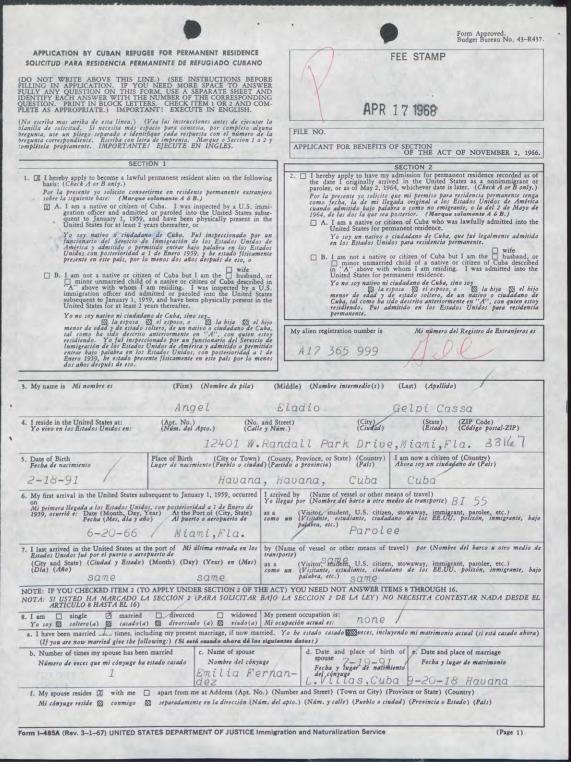 Form Approved,
Budget Bureau No. 43-R437.
APPLICATION BY CUBAN REFUGEE FOR PERMANENT RESIDENCE
SOLICITUD PARA RESIDENCIA PERMANENTE DE REFUGIADO CUBANO
(DO NOT WRITE ABOVE THIS LINE.) (SEE INSTRUCTIONS BEFORE
FILLING IN APPLICATION. IF YOU NEED MORE SPACE TO ANSWER
FULLY ANY QUESTION ON THIS FORM, USE A SEPARATE SHEET AND
IDENTIFY EACH ANSWER WITH THE NUMBER OF THE CORRESPONDING
QUESTION. PRINT IN BLOCK LETTERS. CHECK ITEM 1 OR 2 AND COM-
PLETE AS APPROPRIATE.) IMPORTANT: EXECUTE IN ENGLISH.
(No escriba mas arriba de esta linea.) (Vea las instrucciones antes de ejecutar la
planilla de solicitud. Si necesita más espacio para contestar, por completo alguna
pregunta, use un pliego separado e identifique cada respuesta con el número de la
pregunta correspondiente. Escriba con letra de imprenta. Marque o Section 1 o 2 y
complétela propiamente. IMPORTANTE! EJECUTE EN INGLES.
FEE STAMP
P
APR 17 1968
FILE NO.
APPLICANT FOR BENEFITS OF SECTION
OF THE ACT OF NOVEMBER 2, 1966.
SECTION 1
1. I hereby apply to become a lawful permanent resident alien on the following
basis: (Check A or B only.)
Por la presente yo solicito convertirme en residente permanente extranjero
sobre la siguiente base: (Marque solamente A ó B.)
A. I am a native or citizen of Cuba. I was inspected by a U.S. immi-
gration officer and admitted or paroled into the United States subse-
quent to January 1, 1959, and have been physically present in the
United States for at least 2 years thereafter, or
Yo soy nativo o ciudadano de Cuba. Fuí inspeccionado por un
funcionario del Servicio de Inmigración de los Estados Unidos de
América y admitido o permitido entrar bajo palabra en los Estados
Unidos con posterioridad a 1 de Enero de 1959, y he estado físicamente
presente en este país, por lo menos dos años después de eso, o
B. I am not a native or citizen of Cuba but I am the wife husband, or
minor unmarried child of a native or citizen of Cuba described
in "A" above with whom I am residing. I was inspected by a U.S.
immigration officer and admitted or paroled into the United States
subsequent to January 1, 1959, and have been physically present in the
United States for at least 2 years thereafter.
Yo no soy nativo ni ciudadano de Cuba, sino soy
la esposa el esposo, o la hija el hijo
menor de edad y de estado soltero, de un nativo o ciudadano de Cuba,
tal como ha sido descrito anteriormente en "A", con quien estoy
residiendo. Yo fuí inspeccionado por un funcionario del Servicio de
Inmigración de los Estados Unidos de América y admitido o permitido
entrar bajo palabra en los Estados Unidos, con posterioridad a 1 de
Enero 1959, he estado presente físicamente en este país por lo menos
dos años después de eso.
SECTION 2
2. I hereby apply to have my admission for permanent residence recorded as of
the date I originally arrived in the United States as a nonimmigrant or
parolee, or as of May 2, 1964, whichever date is later. (Check A or B only.)
Por la presente yo solicito que mi permiso para residencia permanente tenga
como fecha, la de mi llegada original a los Estados Unidos de América
cuando admitido bajo palabra o como no emigrante, o la del 2 de Mayo de
1964, de las dos la que sea posterior. (Marque solamente A ó B.)
A. I am a native or citizen of Cuba who was lawfully admitted into the
United States for permanent residence.
Yo soy un nativo o ciudadano de Cuba, que fuí legalmente admitido
en los Estados Unidos para residencia permanente.
B. I am not a native or citizen of Cuba but I am the wife husband, or
minor unmarried child of a native or citizen of Cuba described
in "A" above with whom I am residing. I was admitted into the
United States for permanent residence.
Yo no soy nativo ni ciudadano de Cuba, sino soy
la esposa el esposo, o la hija el hijo
menor de edad y de estado soltero, de un nativo o ciudadano de Cuba,
tal como ha sido descrito anteriormente en "A", con quien estoy
residiendo. Fuí admitido en los Estados Unidos para residencia
permanente.
My alien registration number is Mi número del Registro de Extranjeros es
A17 365 999
3. My name is Mi nombre es (First) (Nombre de pila) (Middle) (Nombre intermedio(s)) (Last) (Apellido)
Angel Eladio Gelpi Cassa
4. I reside in the United States at: (Apt. No.) (No. and Street) (City) (State) (ZIP Code)
Yo vivo en los Estados Unidos en: (Núm. del Apto.) (Calle y Núm.) (Ciudad) (Estado) (Código postal-ZIP)
12401 W.Randall Park Drive,Miami,Fla. 33167
5. Date of Birth Place of Birth (City or Town) (County, Province, or State) (Country) I am now a citizen of (Country)
Fecha de nacimiento Lugar de nacimiento (Pueblo o ciudad) (Partido o provincia) (País) Ahora soy ciudadano de (País)
2-18-91 Havana, Havana, Cuba Cuba
6. My first arrival in the United States subsequent to January 1, 1959, occurred
on
Mi primera llegada a los Estados Unidos, con posterioridad a 1 de Enero de
1959, ocurrió e: Date (Month, Day, Year) At the Port of (City, State)
Fecha (Mes, día y año) Al puerto o aeropuerto de
6-20-66 Miami,Fla.
I arrived by (Name of vessel or other means of travel)
Yo llegué por (Nombre del barco u otro medio de transporte) BI 55
as a (Visitor, student, U.S. citizen, stowaway, immigrant, parolee, etc.)
como un (Visitante, estudiante, ciudadano de los EE.UU. polizón, inmigrante, bajo
palabra, etc.)
Parolee
7. I last arrived in the United States at the port of Mi última entrada en los
Estados Unidos fué por el puerto o aeropuerto de
(City and State) (Ciudad y Estado) (Month) (Day) (Year) en (Mes)
(Día) (Año)
same same
by (Name of vessel or other means of travel) por (Nombre del barco u otro medio de
transporte)
same
as a (Visitor, student, U.S. citizen, stowaway, immigrant, parolee, etc.)
como un (Visitante, estudiante, ciudadano de los EE.UU., polizón, inmigrante, bajo
palabra, etc.) same
NOTE: IF YOU CHECKED ITEM 2 (TO APPLY UNDER SECTION 2 OF THE ACT) YOU NEED NOT ANSWER ITEMS 8 THROUGH 16.
NOTA: SI USTED HA MARCADO LA SECCION 2 (PARA SOLICITAR BAJO LA SECCION 2 DE LA LEY) NO NECESITA CONTESTAR NADA DESDE EL
ARTICULO 8 HASTA EL 16)
8. I am single married divorced widowed My present occupation is:
Yo soy soltero(a) casado(a) divorciado (a) viudo(a) Mi ocupación actual es: none
a. I have been married times, including my present marriage, if now married. Yo he estado casado veces, incluyendo mi matrimonio actual (si está casado ahora)
(If you are now married give the following:) (Si está casado ahora dé los siguientes datos:)
b. Number of times my spouse has been married
Número de veces que mi cónyuge ha estado casado
1
c. Name of spouse
Nombre del cónyuge
Emilia Fernan-
dez
d. Date and place of birth of
spouse 7-19-91
Fecha y lugar de nacimiento
del cónyuge
L.Villas,Cuba
e. Date and place of marriage
Fecha y lugar de matrimonio
9-20-18 Havana
f. My spouse resides with me apart from me at Address (Apt. No.) (Number and Street) (Town or City) (Province or State) (Country)
Mi cónyuge reside conmigo separadamente en la dirección (Núm. del apto.) (Núm. y calle) (Pueblo o ciudad) (Provincia o Estado) (País)
Form I-485A (Rev. 3-1-67) UNITED STATES DEPARTMENT OF JUSTICE Immigration and Naturalization Service (Page 1)